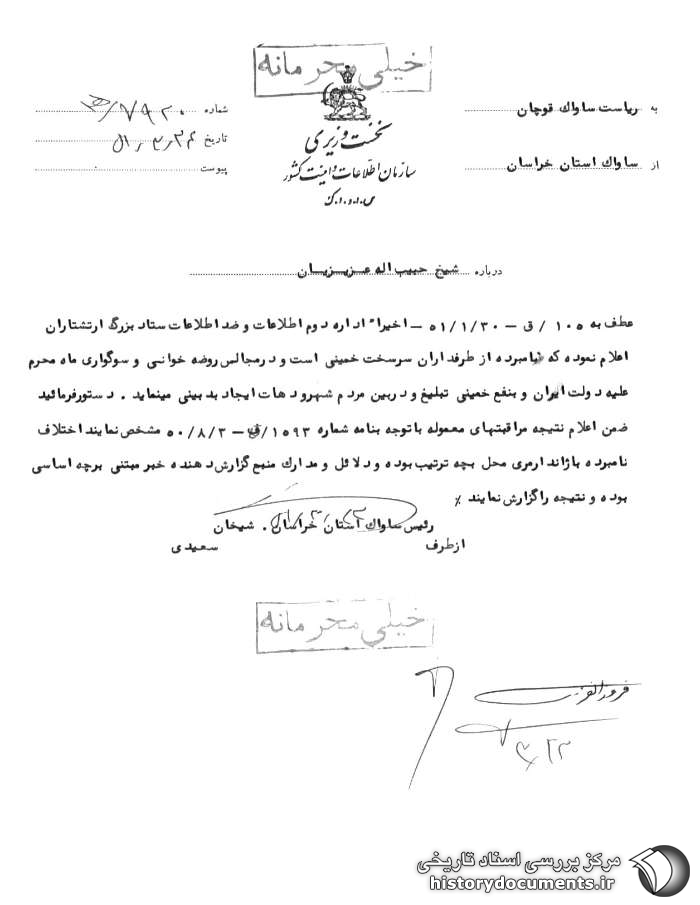 خیلی محرمانه
به ریاست ساواک قوچان
از ساواک استان خراسان
نخست وزیری
سازمان اطلاعات و امنیت کشور
س.ا.و.ا.ک
شماره ۷۹۲۰/ه
تاریخ
پیوست
درباره شیخ حبیب اله عزیزیان
عطف به ۱۰۵ /ق – ۵۱/۱/۳۰ – اخیراً اداره دوم اطلاعات و ضد اطلاعات ستاد بزرگ ارتشتاران
اعلام نموده که نامبرده از طرفداران سرسخت خمینی است و در مجالس روضه خوانی و سوگواری ماه محرم
علیه دولت ایران و بنفع خمینی تبلیغ و در بین مردم شهر و دهات ایجاد بدبینی مینماید . دستور فرمائید
ضمن اعلام نتیجه مراقبتهای معموله با توجه بنامه شماره ۱۵۹۳/ق – ۵۰/۸/۳ مشخص نمایند اختلاف
نامبرده با ژاندارمری محل بچه ترتیب بوده و دلائل و مدارک منبع گزارش دهنده خبر مبتنی برچه اساسی
بوده و نتیجه را گزارش نمایند ٪
رئیس ساواک استان خراسان . شیخان
از طرف سعیدی
خیلی محرمانه
مرکز بررسی اسناد تاریخی
historydocuments.ir